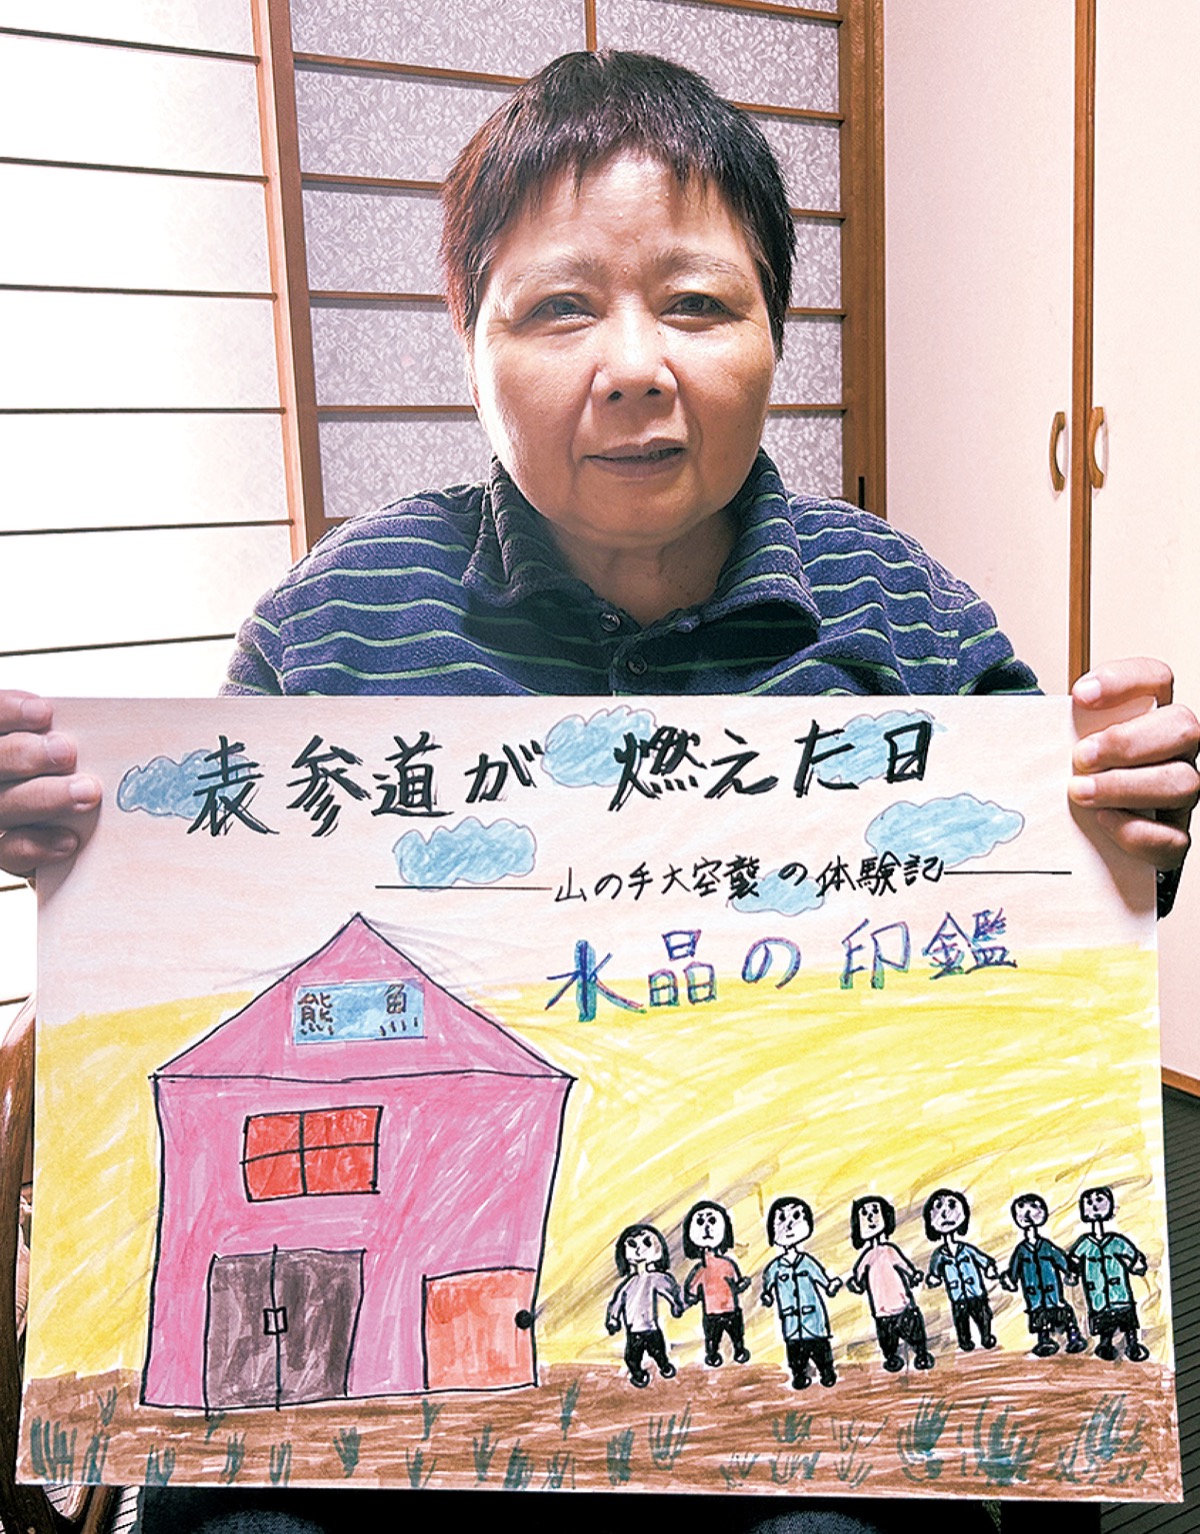 表参道が 燃えた日
山の手大空襲の体験記
水晶の印鑑
熊 魚